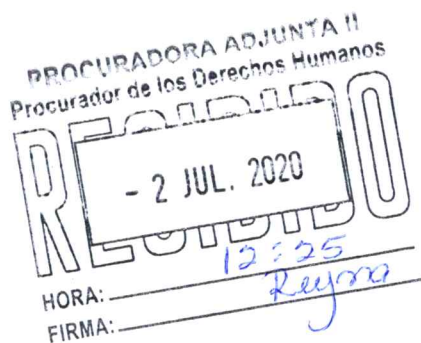 PROCURADORA ADJUNTA II
Procurador de los Derechos Humanos
RECIBIDO
- 2 JUL. 2020
HORA: 12:25
FIRMA: Reyna